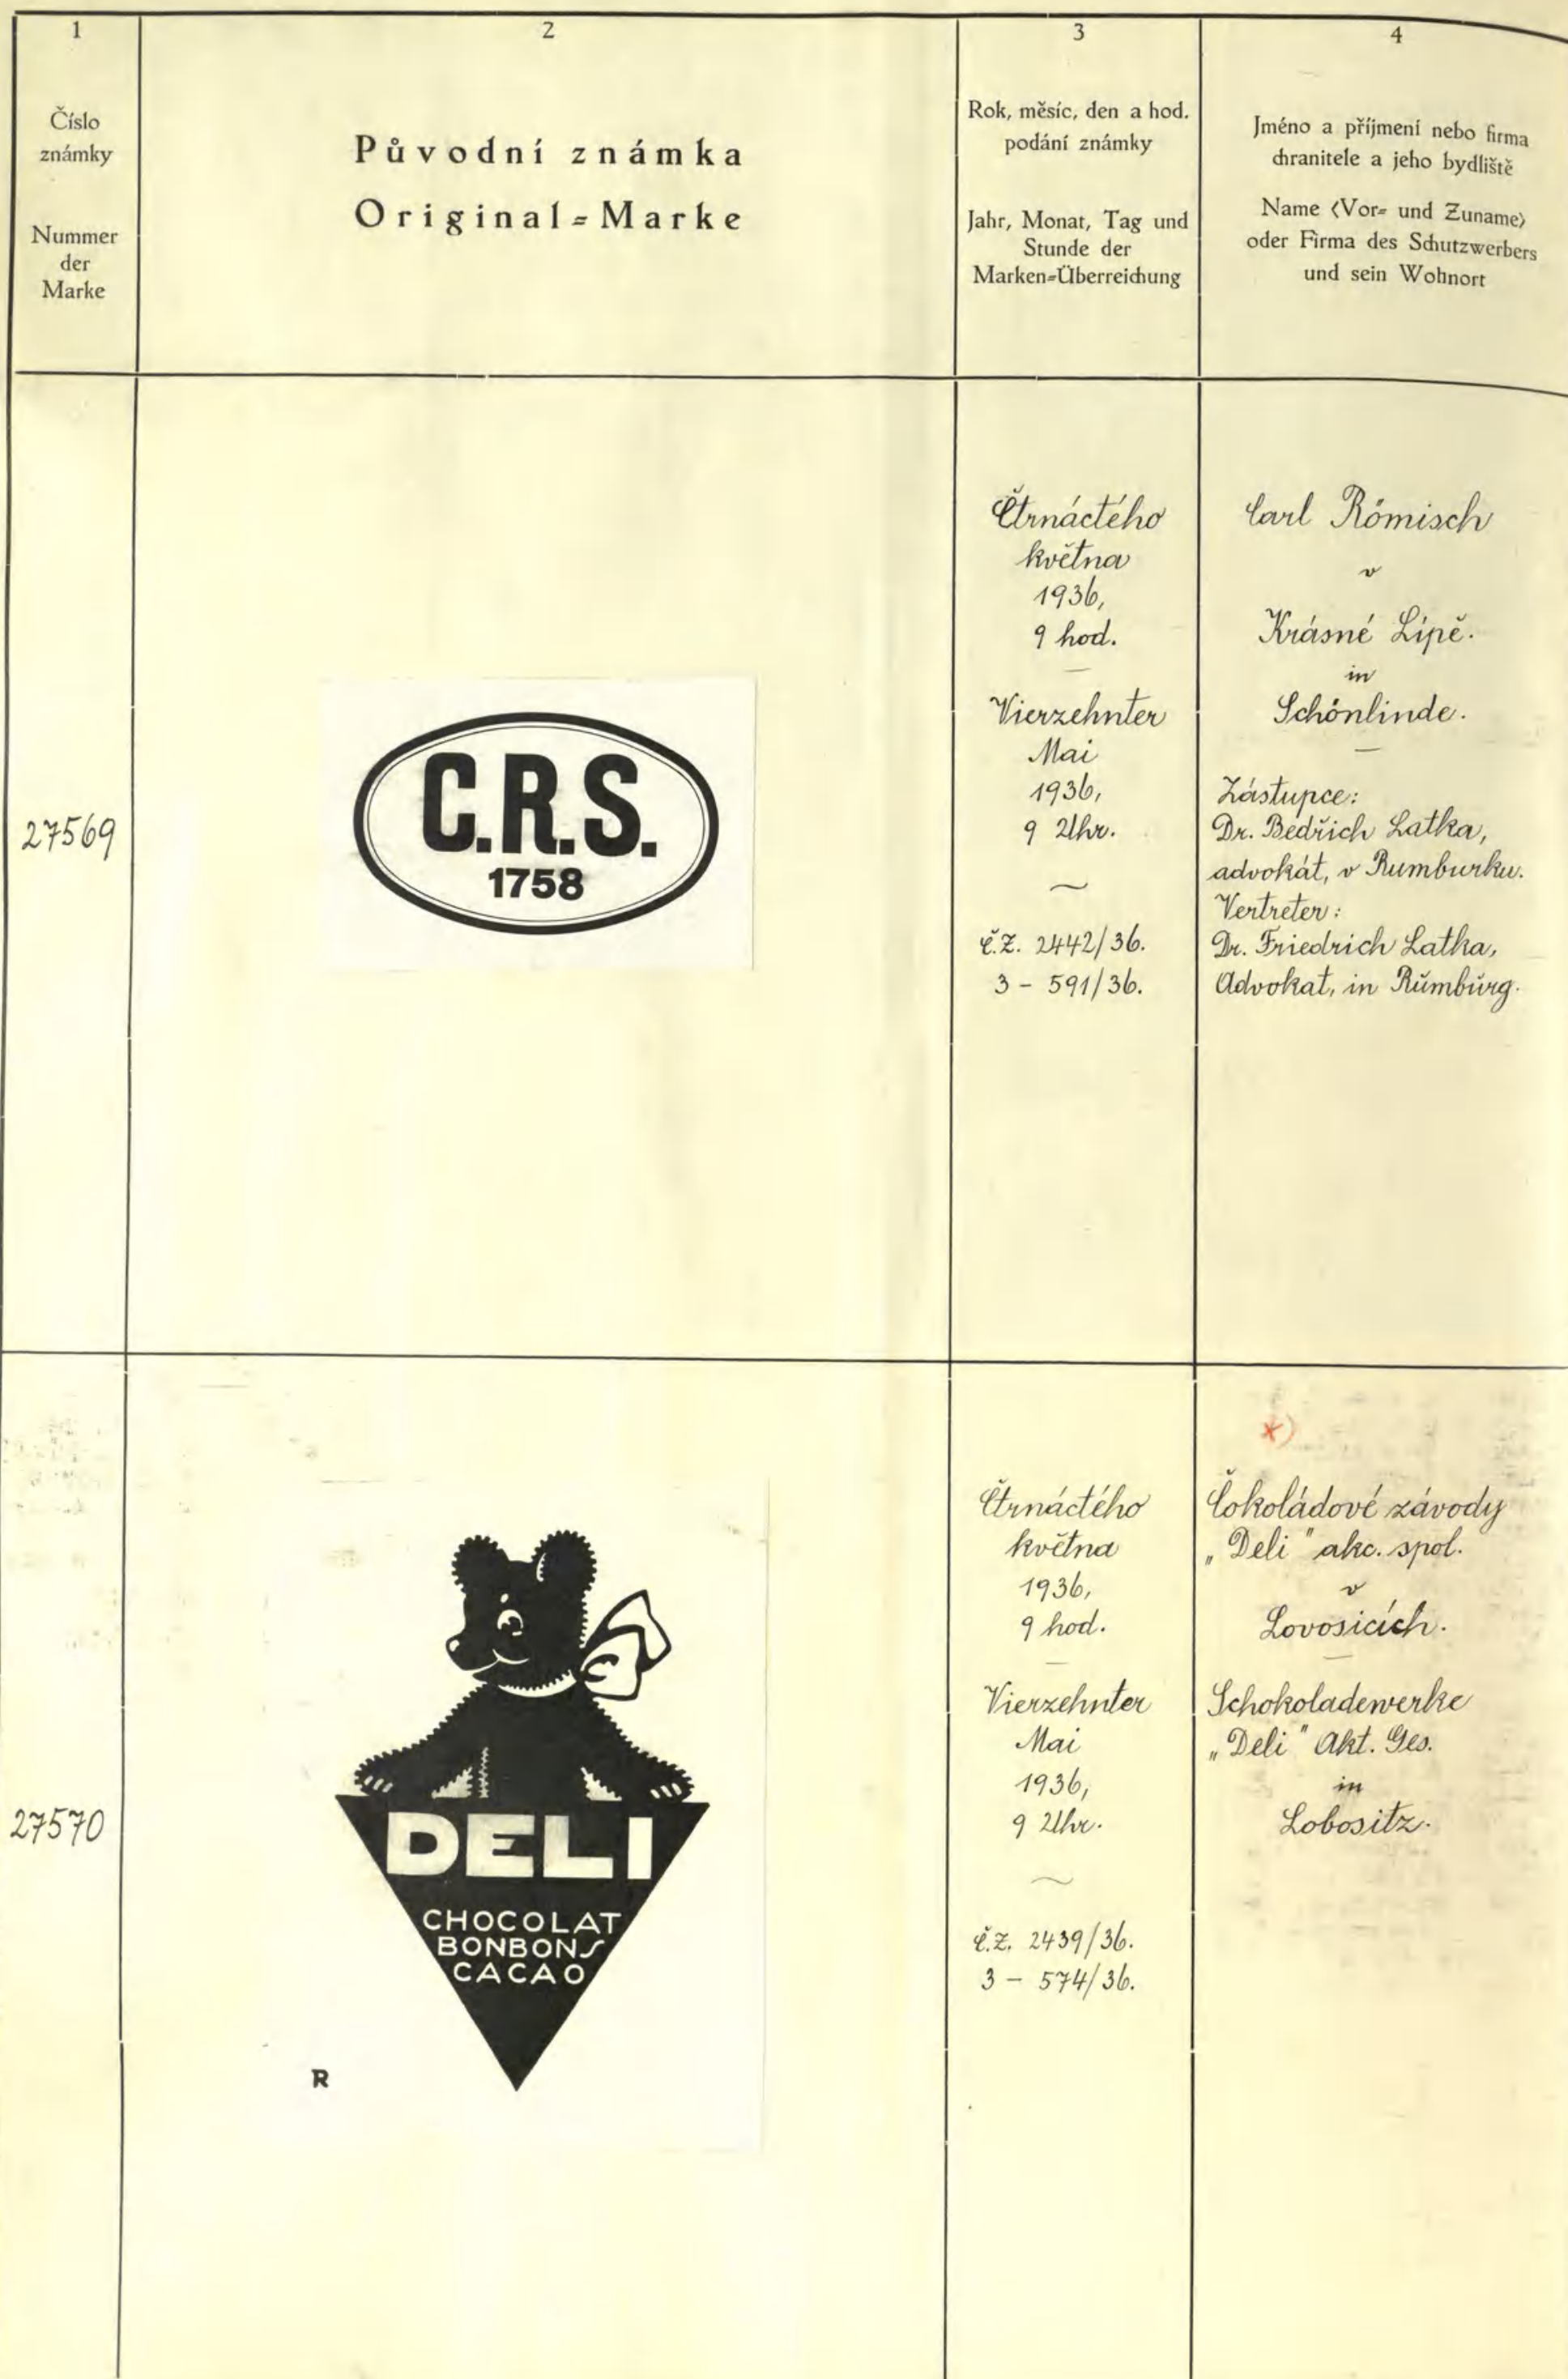 1
2
3
4
Číslo
známky
Nummer
der
Marke
Původní známka
Original=Marke
Rok, měsíc, den a hod.
podání známky
Jahr, Monat, Tag und
Stunde der
Marken=Überreichung
Jméno a příjmení nebo firma
chranitele a jeho bydliště
Name (Vor= und Zuname)
oder Firma des Schutzwerbers
und sein Wohnort
27569
C.R.S.
1758
Čtrnáctého
května
1936,
9 hod.
Vierzehnter
Mai
1936,
9 Uhr.
Č.Z. 2442/36.
3 - 591/36.
Carl Römisch
v
Krásné Lípě.
in
Schönlinde.
Zástupce:
Dr. Bedřich Latka,
advokát, v Rumburku.
Vertreter:
Dr. Friedrich Latka,
Advokat, in Rŭmbŭrg.
27570
DELI
CHOCOLAT
BONBONS
CACAO
R
Čtrnáctého
května
1936,
9 hod.
Vierzehnter
Mai
1936,
9 Uhr.
Č.Z. 2439/36.
3 - 574/36.
*)
Čokoládové závody
„Deli" akc. spol.
v
Lovosicích.
Schokoladewerke
„Deli" Akt. Ges.
in
Lobositz.